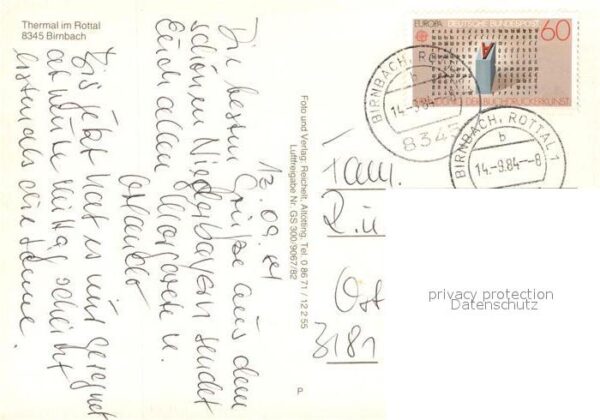 Thermal im Rottal
8345 Birnbach
13. 09. 84
Die besten Grüße aus dem
schönen Niederbayern sendet
Euch allen u.
Bis jetzt hat es nur geregnet
ab heute mittag scheint
die Sonne.
Foto und Verlag: Reichelt, Altötting, Tel. 0 86 71 / 12 2 55
Luftfreigabe Nr. GS 300/9067/82
P
EUROPA DEUTSCHE BUNDESPOST 60
DER BUCHDRUCKERKUNST
BIRNBACH, RO
b
14.-9.84
8345
BIRNBACH, ROTTAL 1
b
14.-9.84--8
Fam.
R. u
Ost
3181
privacy protection
Datenschutz